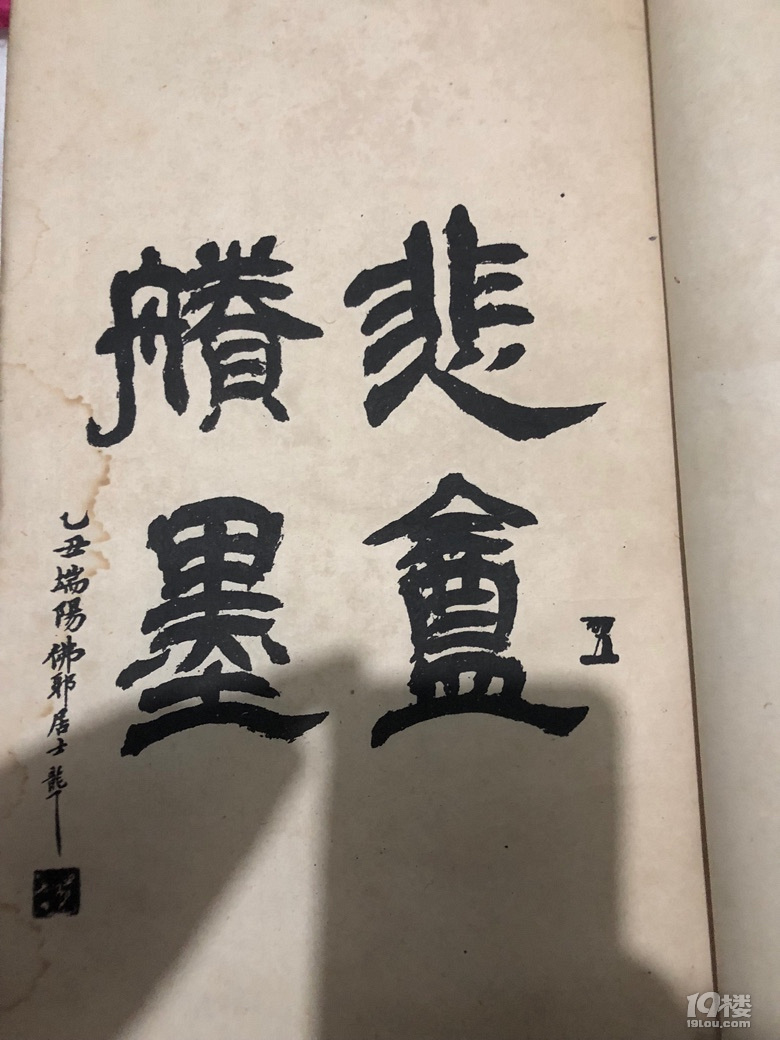 悲盦
賸墨
乙丑端陽佛耶居士龍丁
19楼
19lou.com